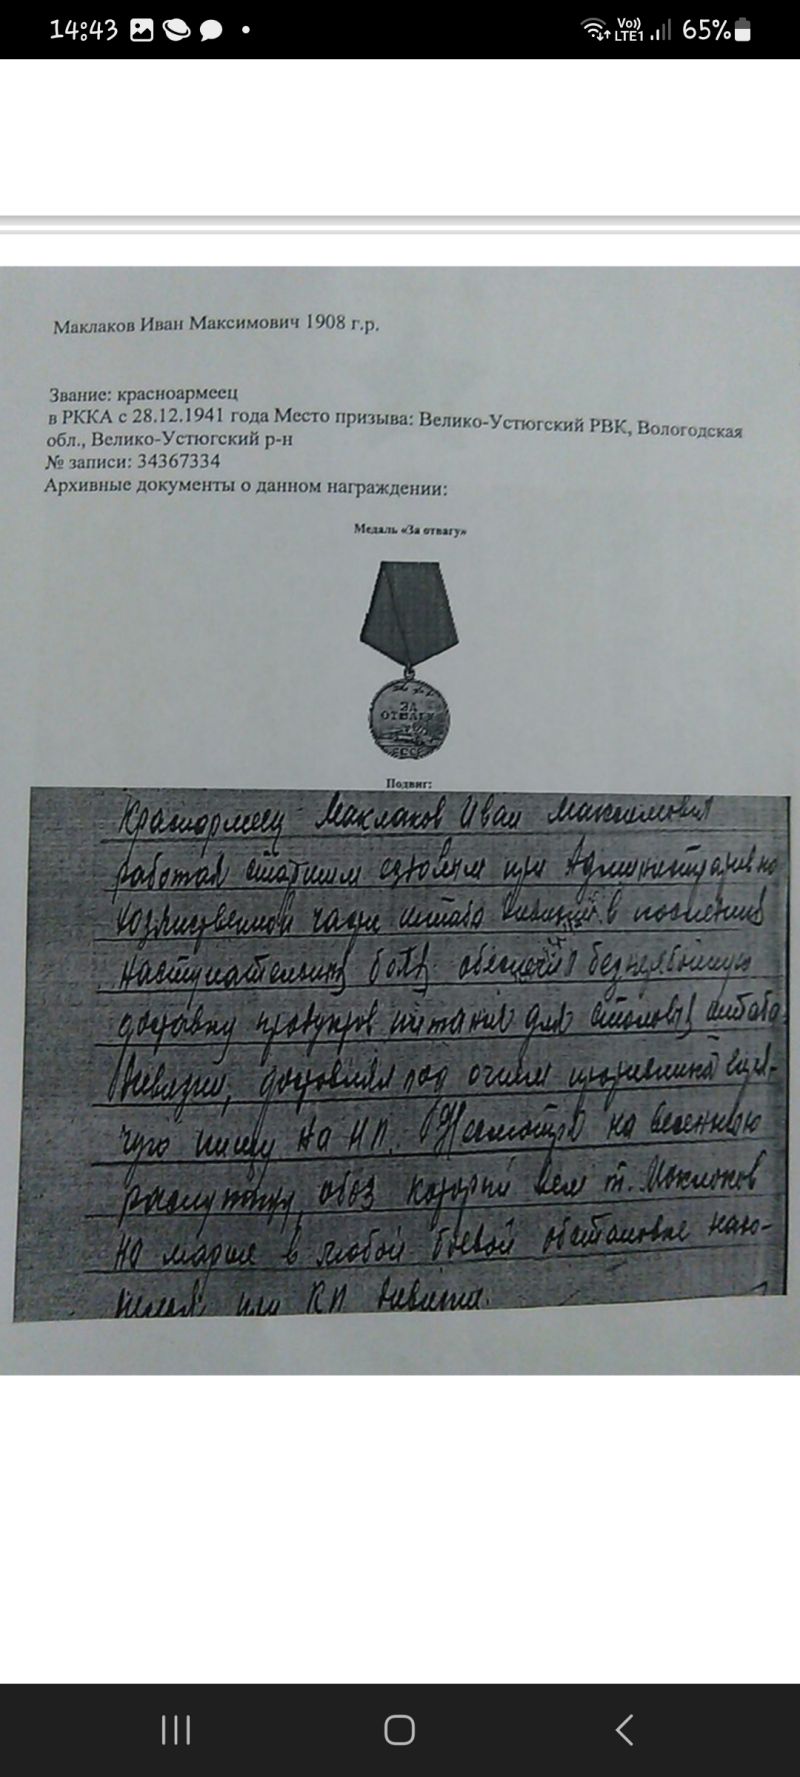 14:43
Vo)) LTE1 65%
Маклаков Иван Максимович 1908 г.р.
Звание: красноармеец
в РККА с 28.12.1941 года Место призыва: Велико-Устюгский РВК, Вологодская
обл., Велико-Устюгский р-н
№ записи: 34367334
Архивные документы о данном награждении:
Медаль «За отвагу»
ЗА
ОТВАГУ
СССР
Подвиг:
Красноармеец Маклаков Иван Максимович
работая старшим ездовым при Административно
хозяйственной части штаба дивизии в последних
наступательных боях обеспечил бесперебойную
доставку продуктов питания для столовых штаба
дивизии, доставлял под огнем противника
пищу на НП. Несмотря на весеннюю
распутицу, обоз который вел т. Маклаков
на марше в любой боевой обстановке
или КП дивизии.